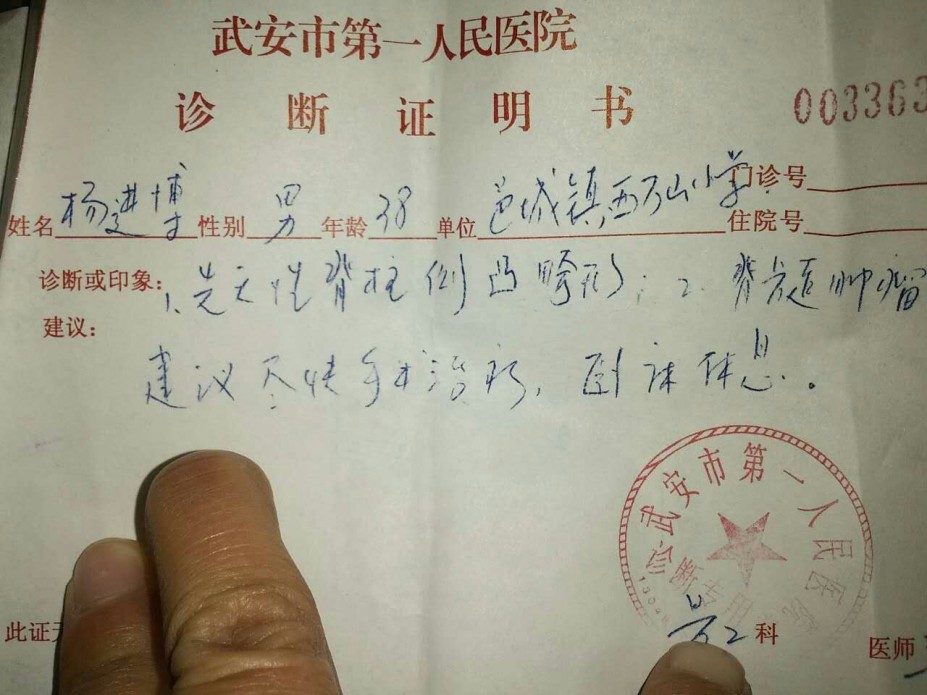 武安市第一人民医院
诊断证明书
003363
姓名 杨进博 性别 男 年龄 38 单位 邑城镇西万山小学 门诊号
住院号
诊断或印象: 1、先天性脊柱侧凸畸形; 2、脊髓肿瘤
建议:
建议尽快手术治疗,卧床休息。
武安市第一人民医院
此证
科
医师